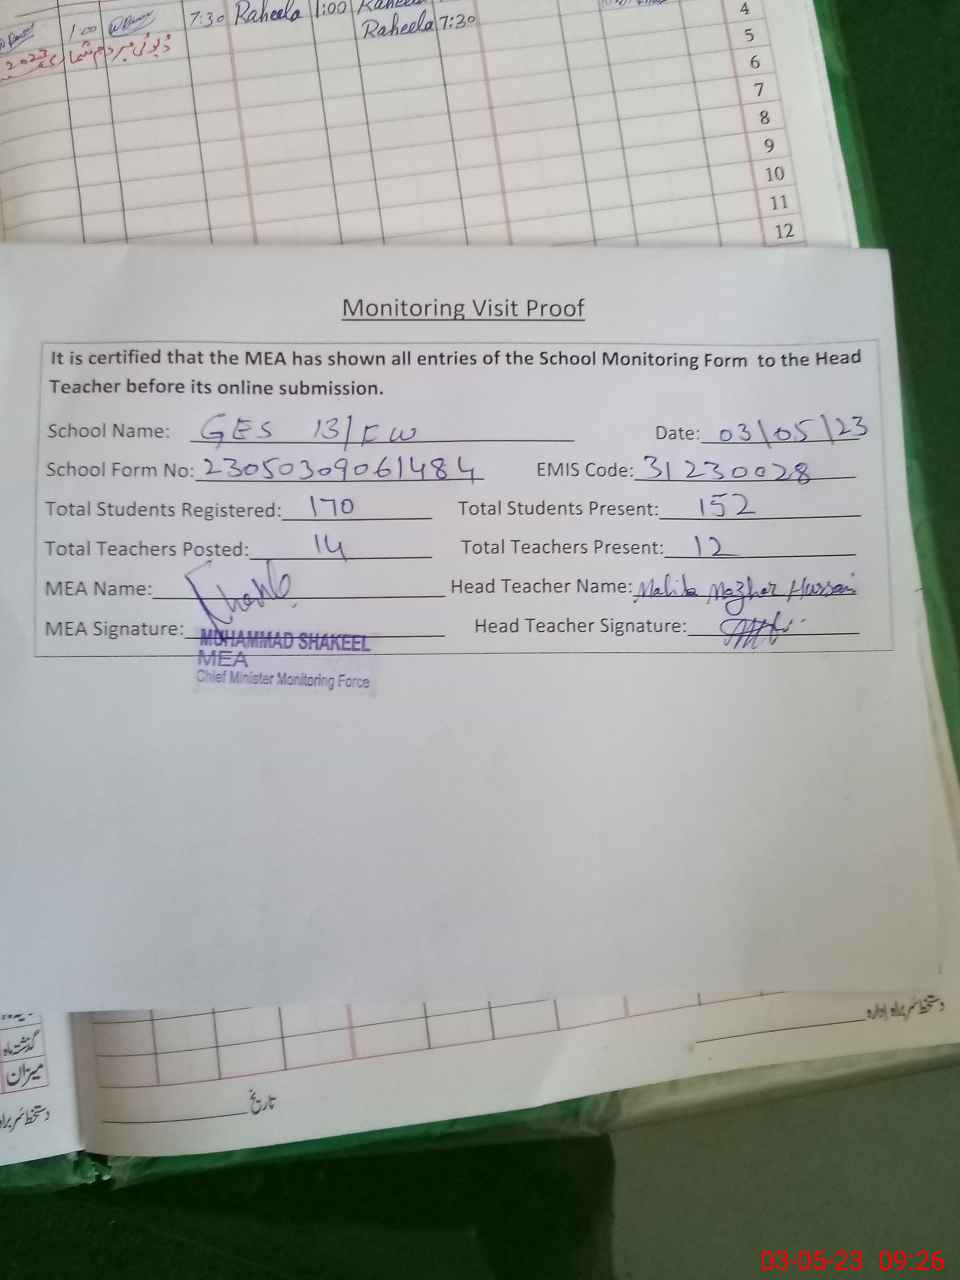 7:30 Raheela 1:00
Raheela 7:30
1:00
2023
4
5
6
7
8
9
10
11
12
Monitoring Visit Proof
It is certified that the MEA has shown all entries of the School Monitoring Form to the Head
Teacher before its online submission.
School Name: GES 13/EW Date: 03/05/23
School Form No: 23050309061484 EMIS Code: 31230028
Total Students Registered: 170 Total Students Present: 152
Total Teachers Posted: 14 Total Teachers Present: 12
MEA Name: Head Teacher Name: Maliha Mazhar Hussain
MEA Signature: Head Teacher Signature:
MUHAMMAD SHAKEEL
MEA
Chief Minister Monitoring Force
دستخط سربراہ ادارہ
گذشتہ ماہ
میزان
تاریخ
دستخط سربراہ
03-05-23 09:26